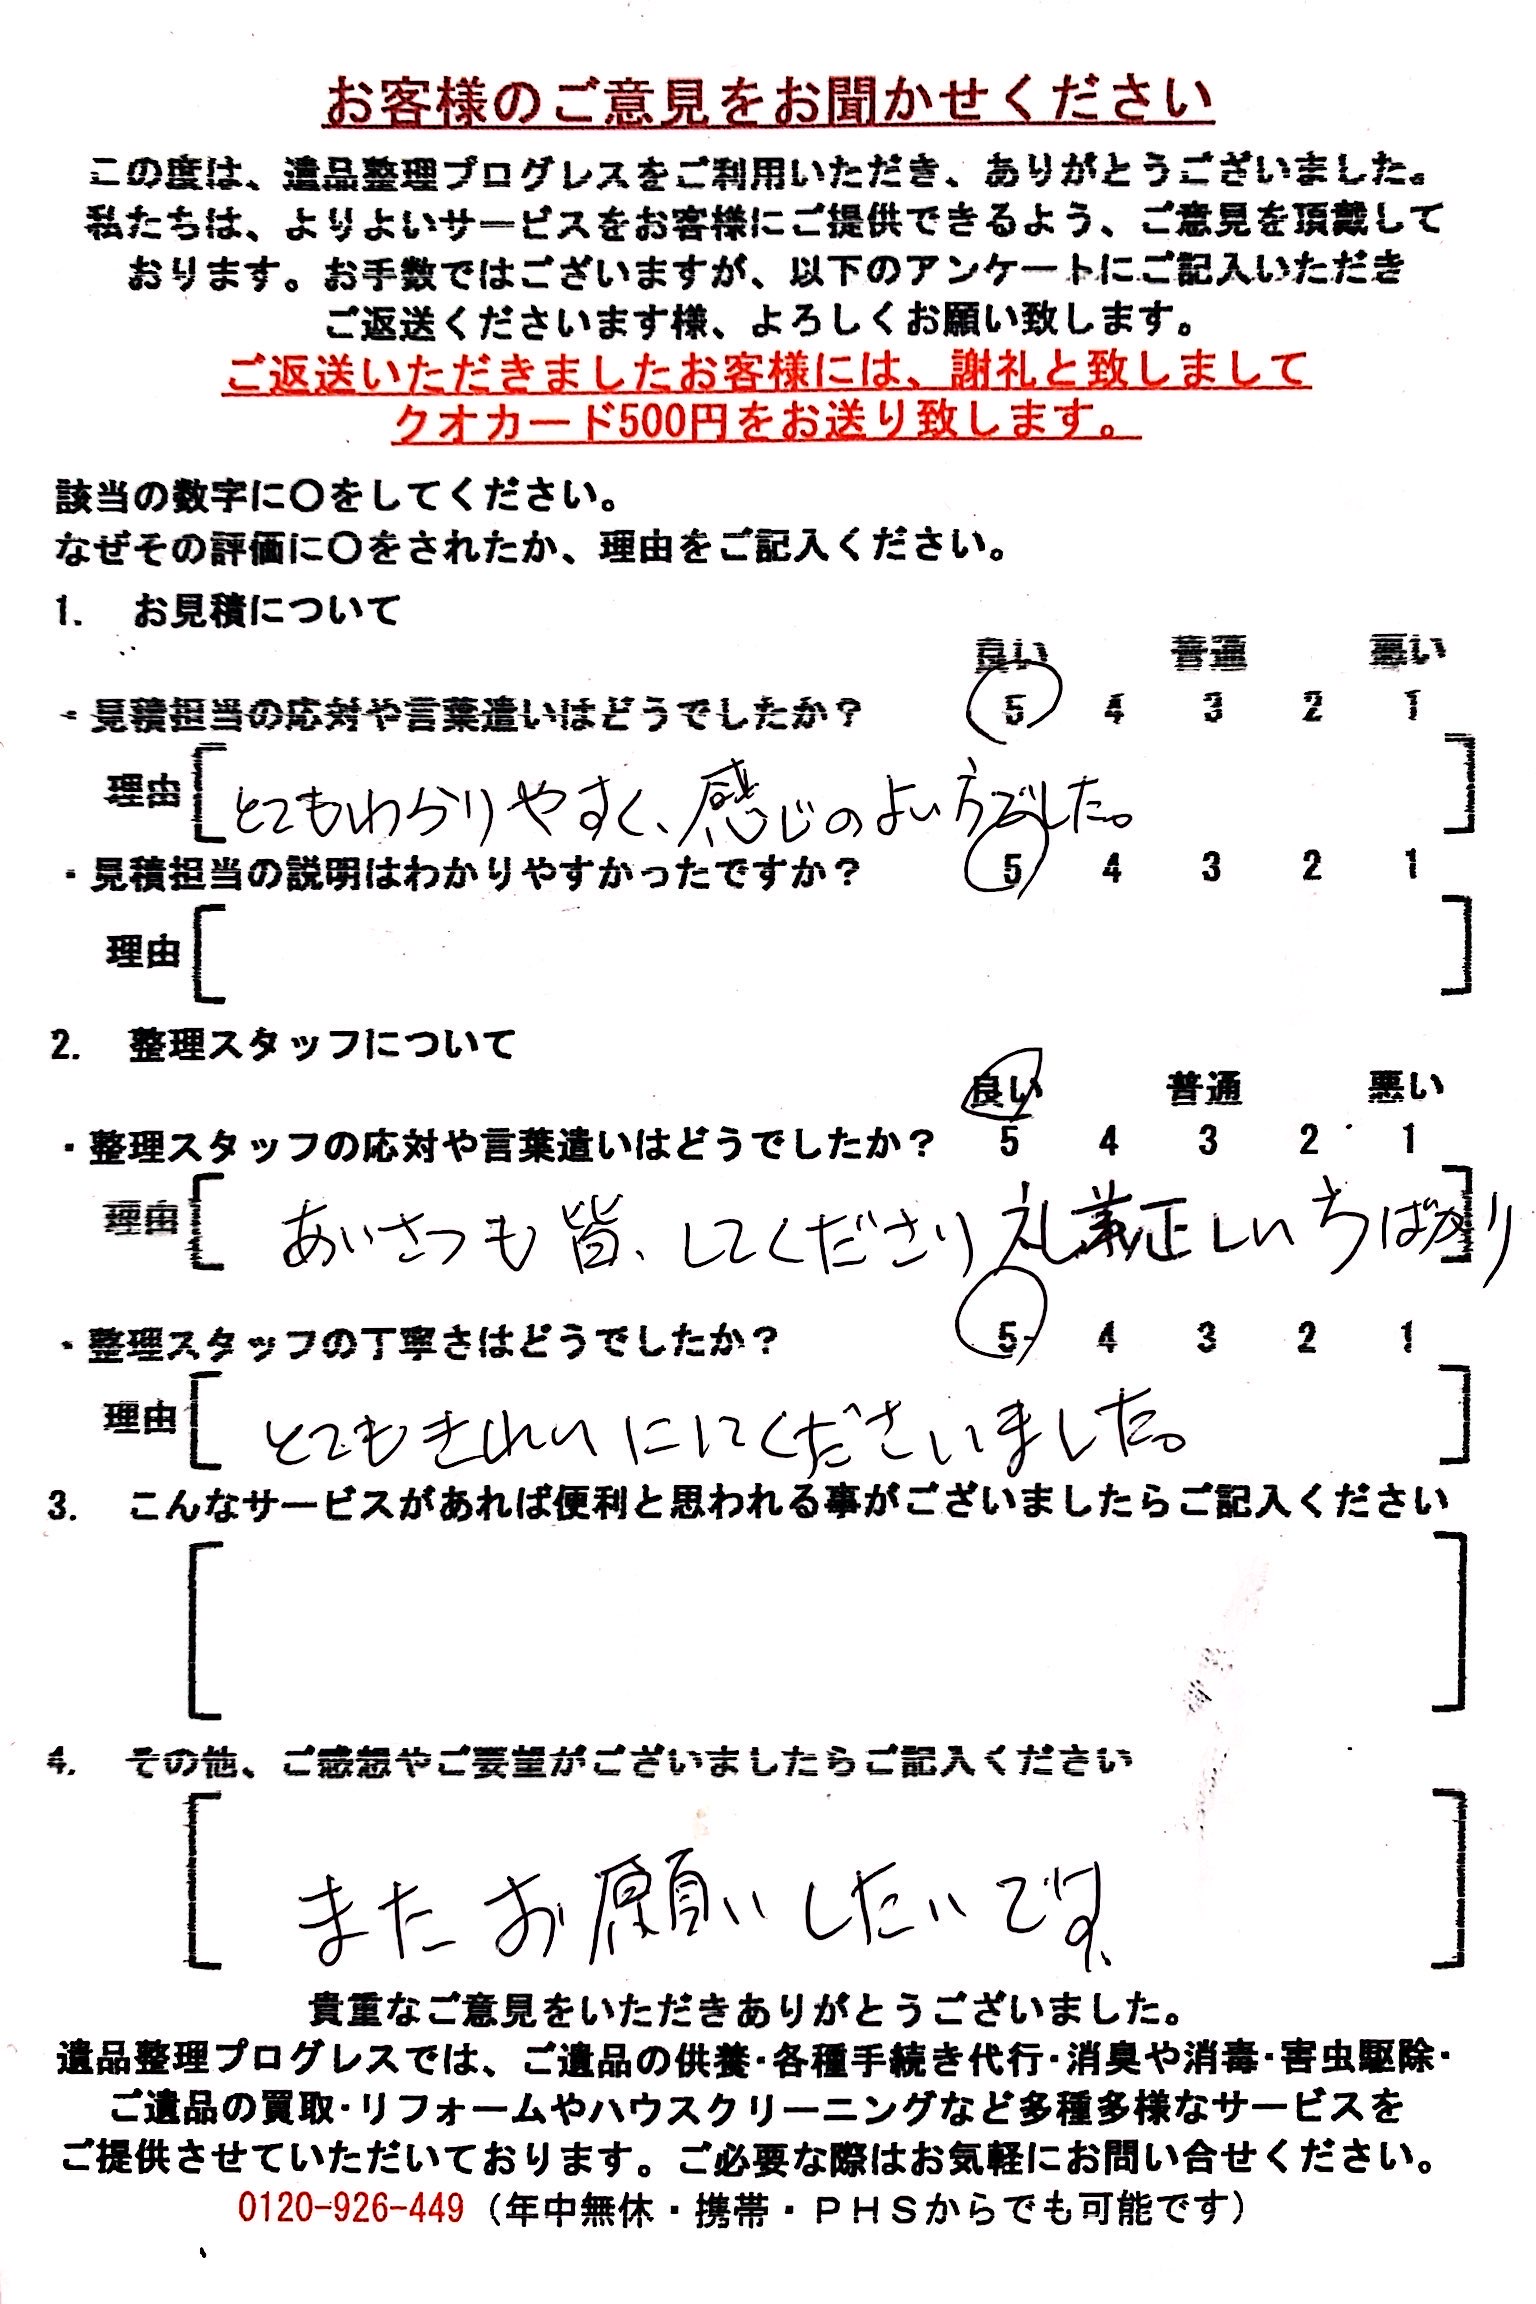 お客様のご意見をお聞かせください
この度は、遺品整理プログレスをご利用いただき、ありがとうございました。
私たちは、よりよいサービスをお客様にご提供できるよう、ご意見を頂戴して
おります。お手数ではございますが、以下のアンケートにご記入いただき
ご返送くださいます様、よろしくお願い致します。
ご返送いただきましたお客様には、謝礼と致しまして
クオカード500円をお送り致します。
該当の数字に〇をしてください。
なぜその評価に〇をされたか、理由をご記入ください。
1. お見積について
良い 普通 悪い
・見積担当の応対や言葉遣いはどうでしたか? 5 4 3 2 1
理由 とてもわかりやすく、感じのよい方でした。
・見積担当の説明はわかりやすかったですか? 5 4 3 2 1
理由
2. 整理スタッフについて
良い 普通 悪い
・整理スタッフの応対や言葉遣いはどうでしたか? 5 4 3 2 1
理由 あいさつも皆、してくださり礼義正しい方ばかり
・整理スタッフの丁寧さはどうでしたか? 5 4 3 2 1
理由 とてもきれいにしてくださいました。
3. こんなサービスがあれば便利と思われる事がございましたらご記入ください
4. その他、ご感想やご要望がございましたらご記入ください
またお願いしたいです、
貴重なご意見をいただきありがとうございました。
遺品整理プログレスでは、ご遺品の供養・各種手続き代行・消臭や消毒・害虫駆除・
ご遺品の買取・リフォームやハウスクリーニングなど多種多様なサービスを
ご提供させていただいております。ご必要な際はお気軽にお問い合せください。
0120-926-449（年中無休・携帯・ＰＨＳからでも可能です）